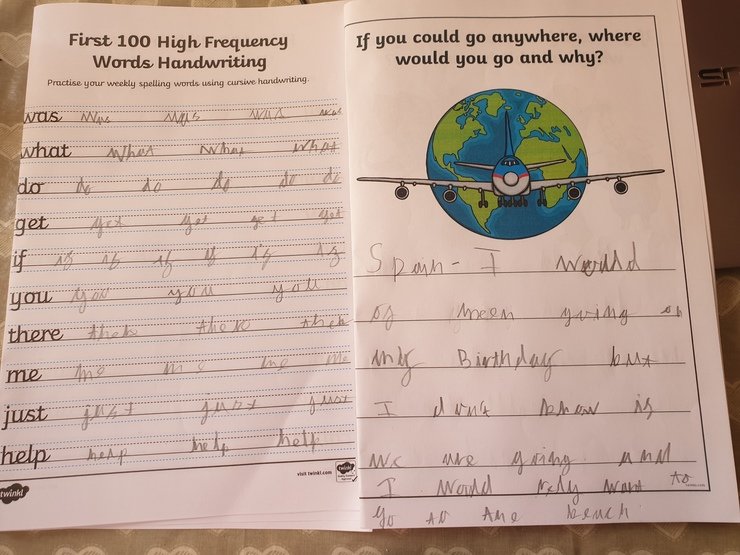 First 100 High Frequency
Words Handwriting
Practise your weekly spelling words using cursive handwriting.
was was was was was
what what what what
do do do do do do
get get get get get
if if if if if if if
you you you you
there there there
me me me me me
just just just just
help help help help
visit twinkl.com
twinkl
twinkl
If you could go anywhere, where
would you go and why?
Spain - I would
of going on
my Birthday but
I don't know if
we are going and
I would rely want to
go to the beach